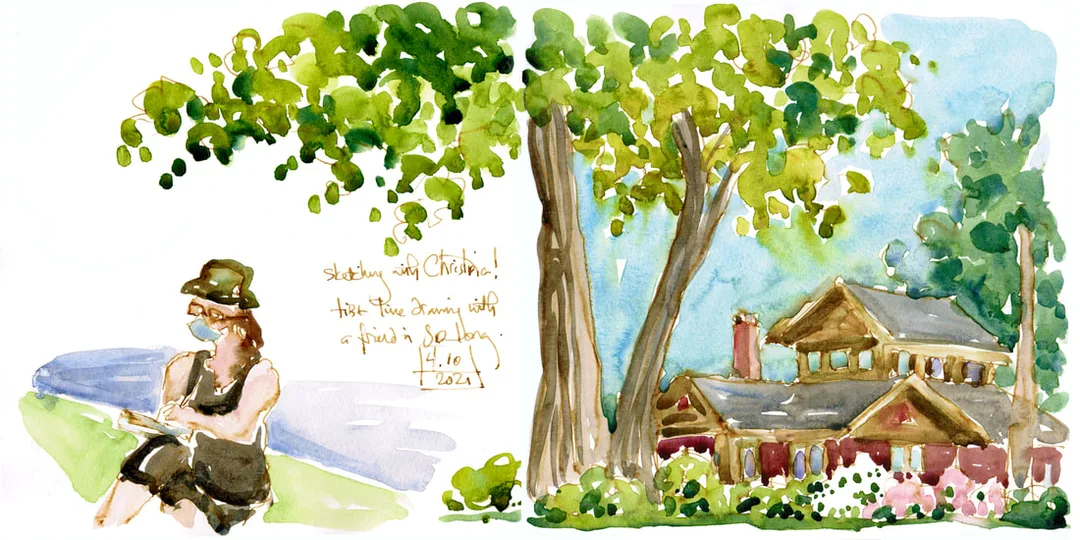 sketching with Christina!
first time drawing with
a friend in so long.
4.10
2021